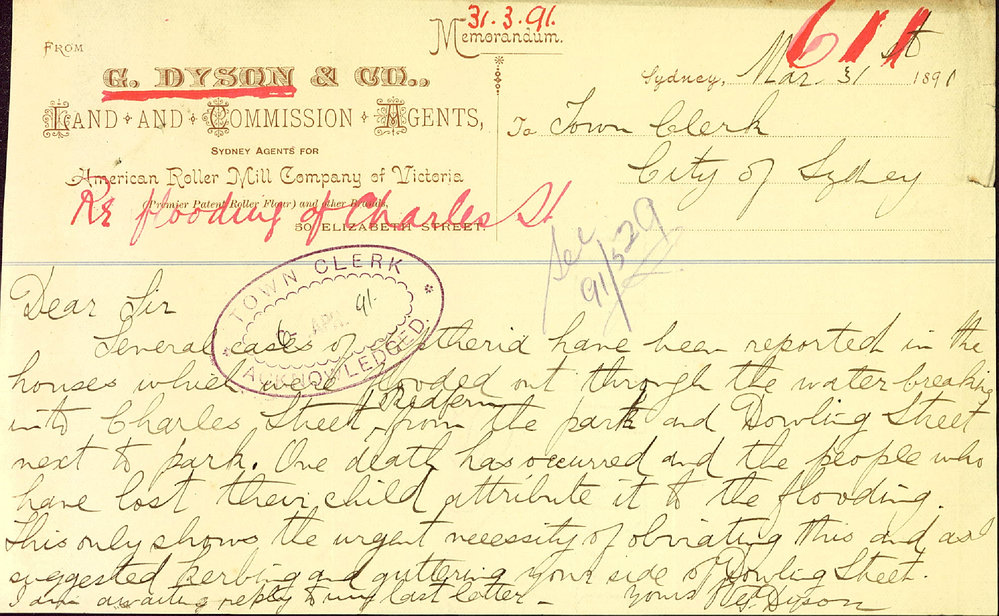 31.3.91.
Memorandum.
611
FROM
G. DYSON & CO.,
LAND AND COMMISSION AGENTS,
SYDNEY AGENTS FOR
American Roller Mill Company of Victoria
(Premier Patent Roller Flour) and other Brands,
50 ELIZABETH STREET
Re flooding of Charles St
Sydney, Mar 31st 1891
To Town Clerk
City of Sydney
See
91/529
TOWN CLERK
6 APR. 91.
ACKNOWLEDGED.
Dear Sir
Several cases of have been reported in the
houses which were flooded out through the water breaking
into Charles Street, Redfern from the park and Dowling Street
next to park. One death has occurred and the people who
have lost their child attribute it to the flooding.
This only shows the urgent necessity of obviating this and as I
suggested kerbing and guttering your side of Dowling Street.
I am awaiting reply to my last letter - Yours Dyson